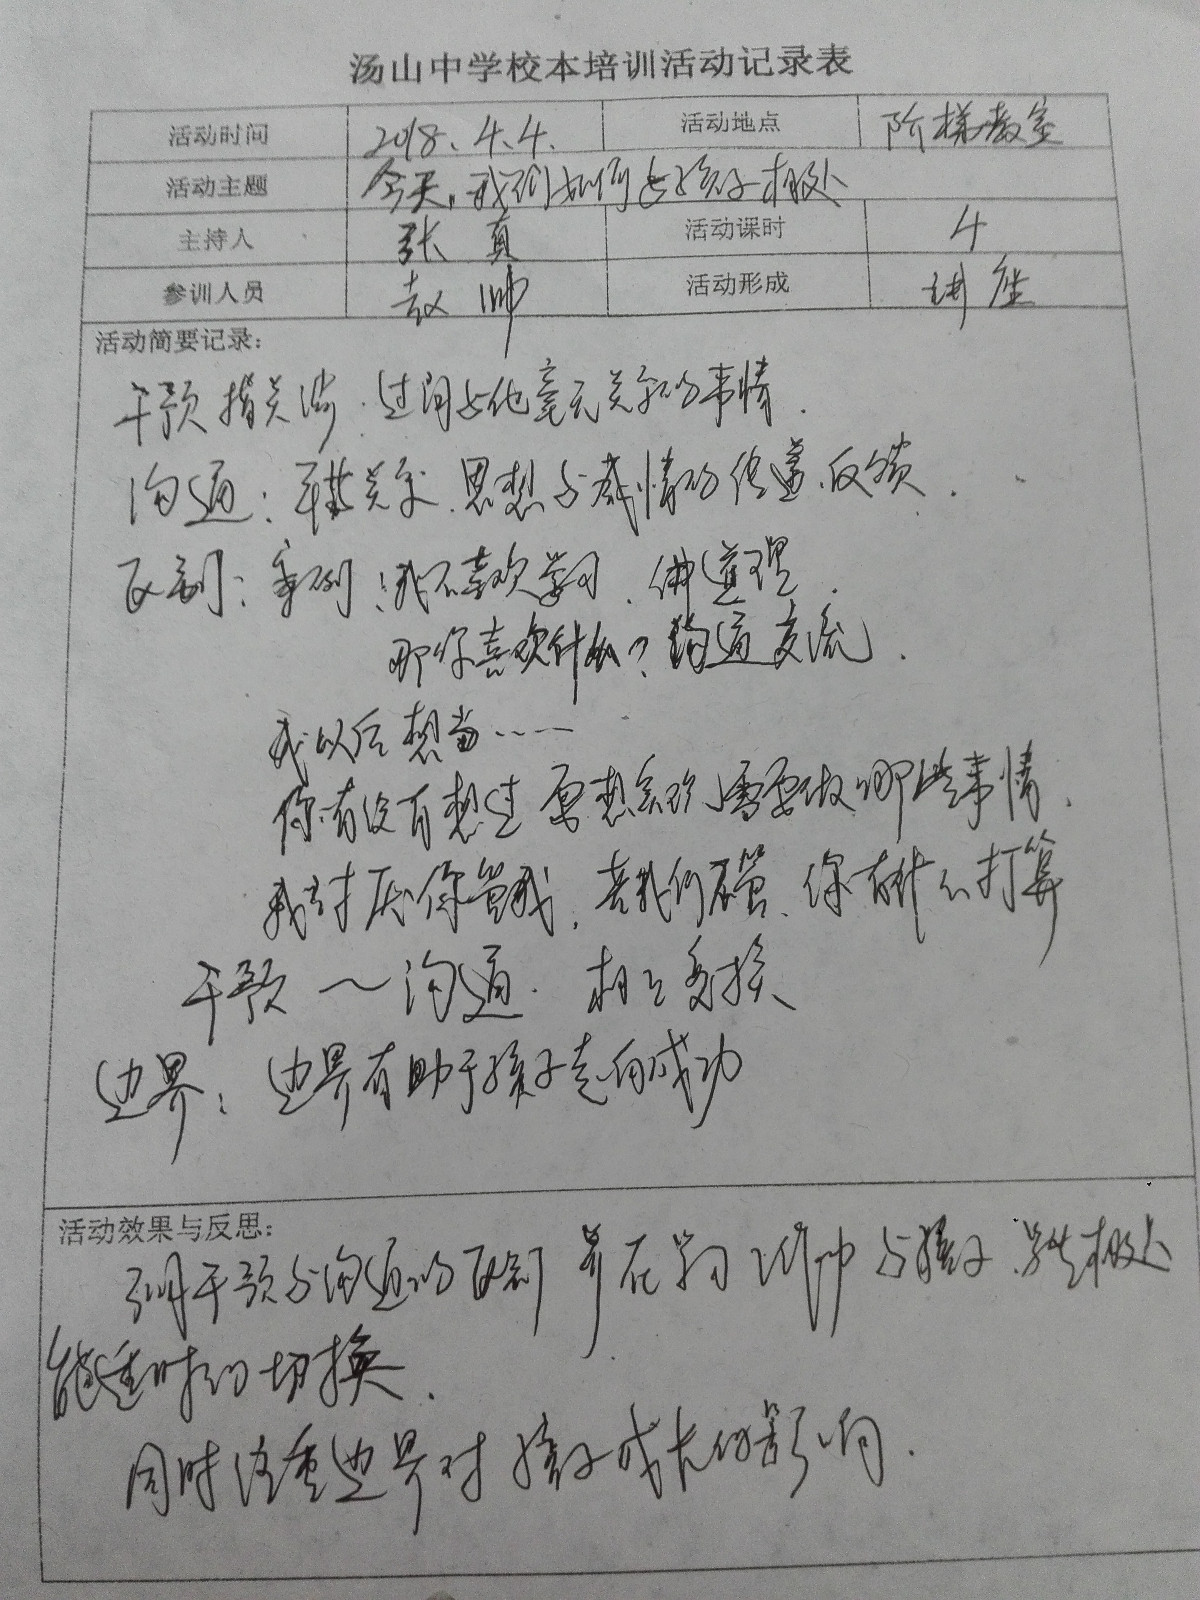 汤山中学校本培训活动记录表
活动时间 2018.4.4. 活动地点 阶梯教室
活动主题 今天,我们如何与孩子相处
主持人 张真 活动课时 4
参训人员 赵帅 活动形成 讲座
活动简要记录:
干预指关涉.过问与他毫无关系的事情.
沟通: 关系.思想与感情的传递、反馈.
区别: 案例:我不喜欢学习、讲道理.
那你喜欢什么?沟通交流.
我以后想当……
你有没有想过 要想 需要做哪些事情、
我讨厌你管我,若我们不管、你有什么打算
干预~沟通. 相互变换
边界: 边界有助于孩子走向成功
活动效果与反思:
干预与沟通的区别 并在学习 与孩子 相处
能适时的切换.
同时注重边界对孩子成长的影响.